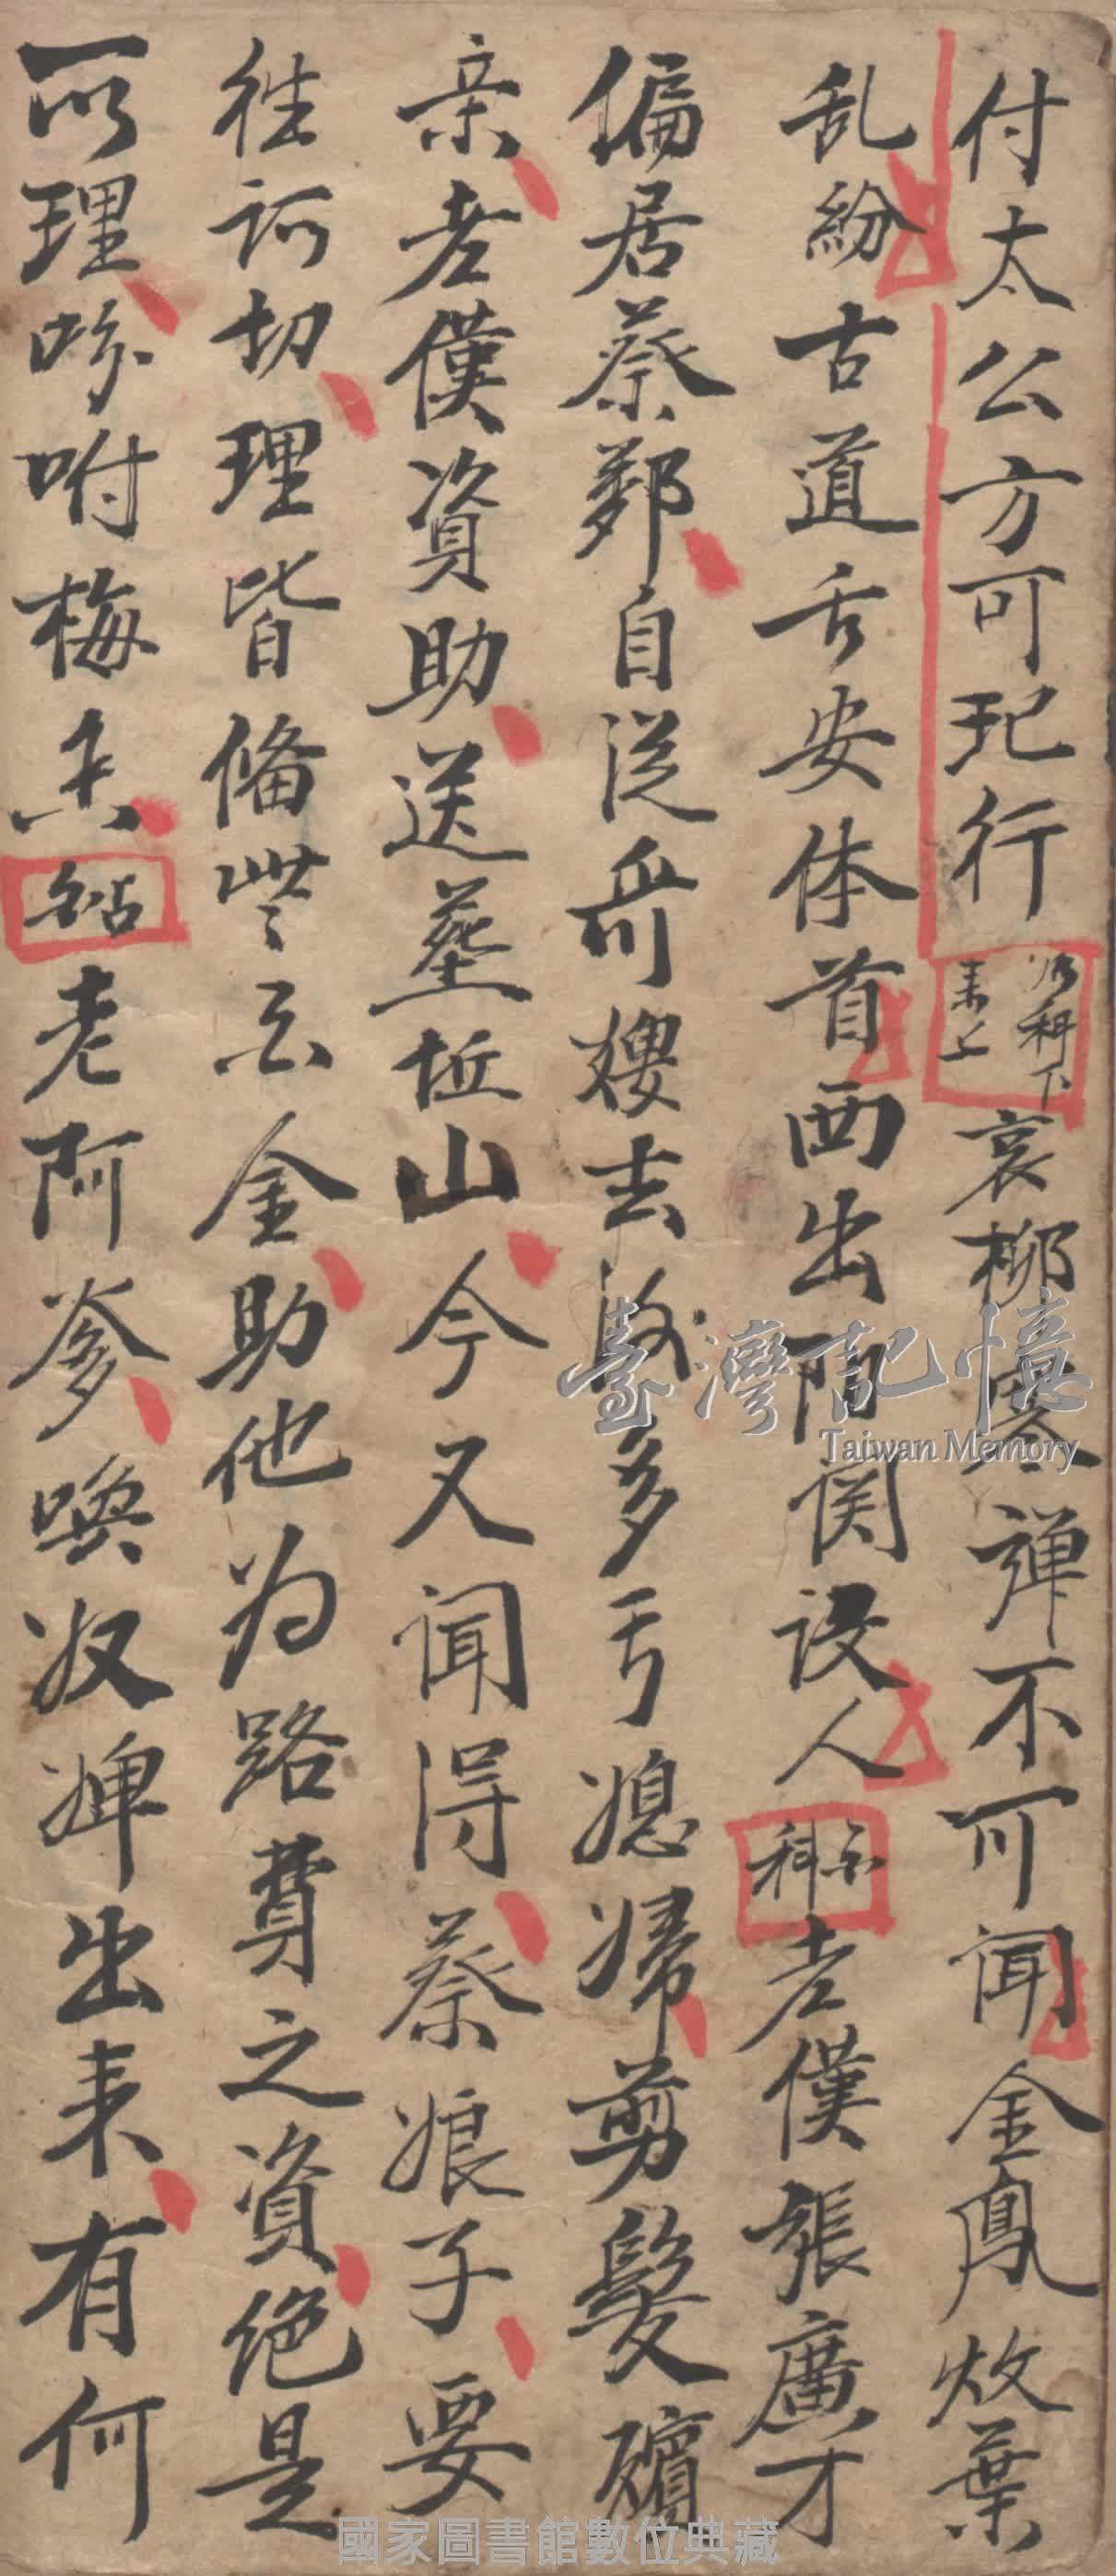 付太公方可玘行 科下 末上 哀柳寒蟬不可闻金鳳敗葉
乱紛古道舌安体首西出陽関设人 科 老僕張廣才
偏居蔡鄰自從哥嫂去後多亏媳婦剪髮殯
亲老僕資助送葬坵山今又闻淂蔡娘子要
往訶切理皆偹岂云金助他为路費之資绝是
所理吩咐梅香 白 老阿爹喚奴婢出来有何
臺灣記憶
Taiwan Memory
國家圖書館數位典藏